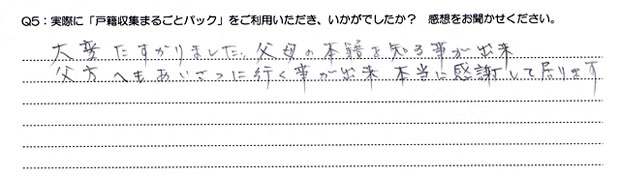 Q5：実際に「戸籍収集まるごとパック」をご利用いただき、いかがでしたか？ 感想をお聞かせください。
大変たすかりました、父母の本籍を知る事が出来
父方へもあいさつに行く事が出来 本当に感謝して居ります